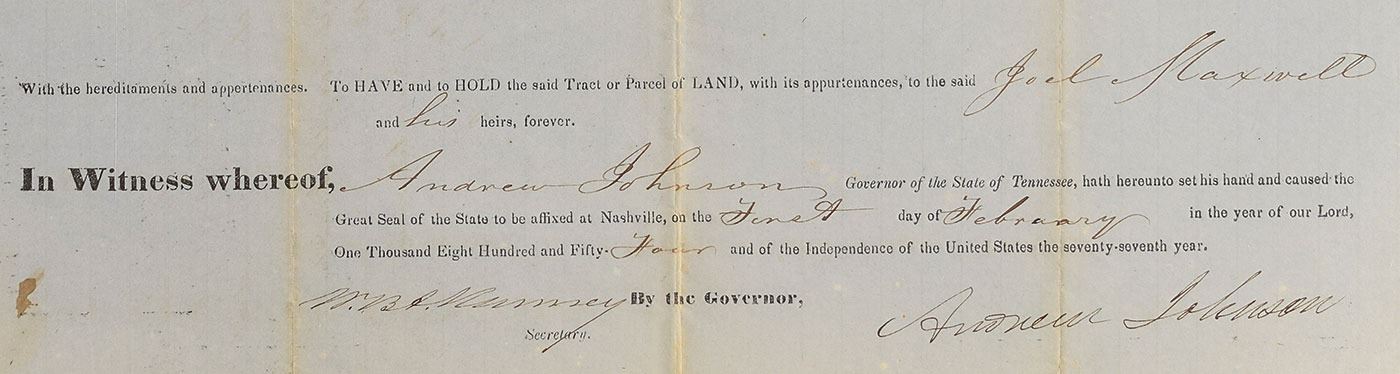 With the hereditaments and appertenances. To HAVE and to HOLD the said Tract or Parcel of LAND, with its appurtenances, to the said Joel Maxwell
and his heirs, forever.
In Witness whereof, Andrew Johnson Governor of the State of Tennessee, hath hereunto set his hand and caused the
Great Seal of the State to be affixed at Nashville, on the First day of February in the year of our Lord,
One Thousand Eight Hundred and Fifty-Four and of the Independence of the United States the seventy-seventh year.
W. B. A. Ramsey By the Governor, Andrew Johnson
Secretary.